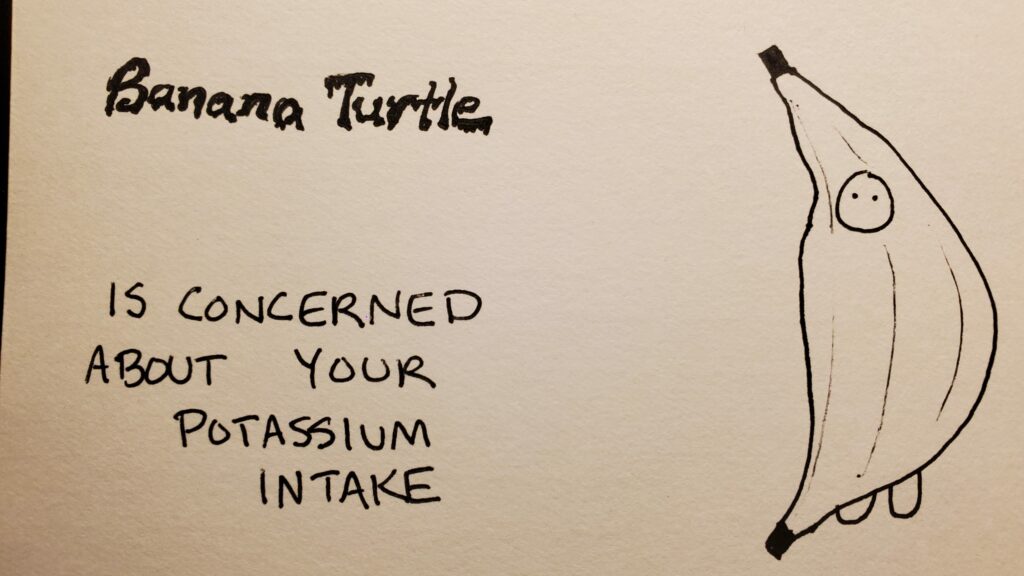 Banana Turtle
IS CONCERNED
ABOUT YOUR
POTASSIUM
INTAKE